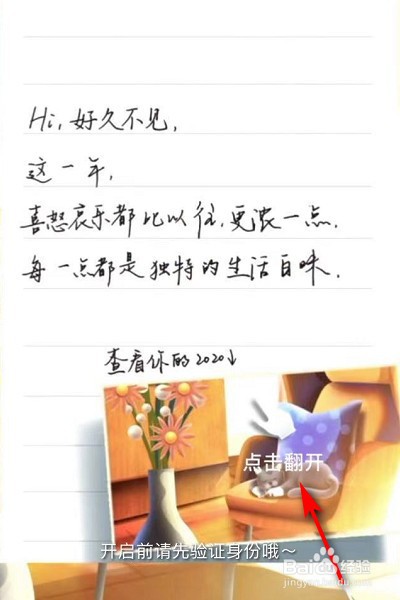 Hi，好久不见，
这一年，
喜怒哀乐都比以往，更浓一点．
每一点都是独特的生活百味．
查看你的2020↓
点击翻开
开启前请先验证身份哦～
Baidu经验